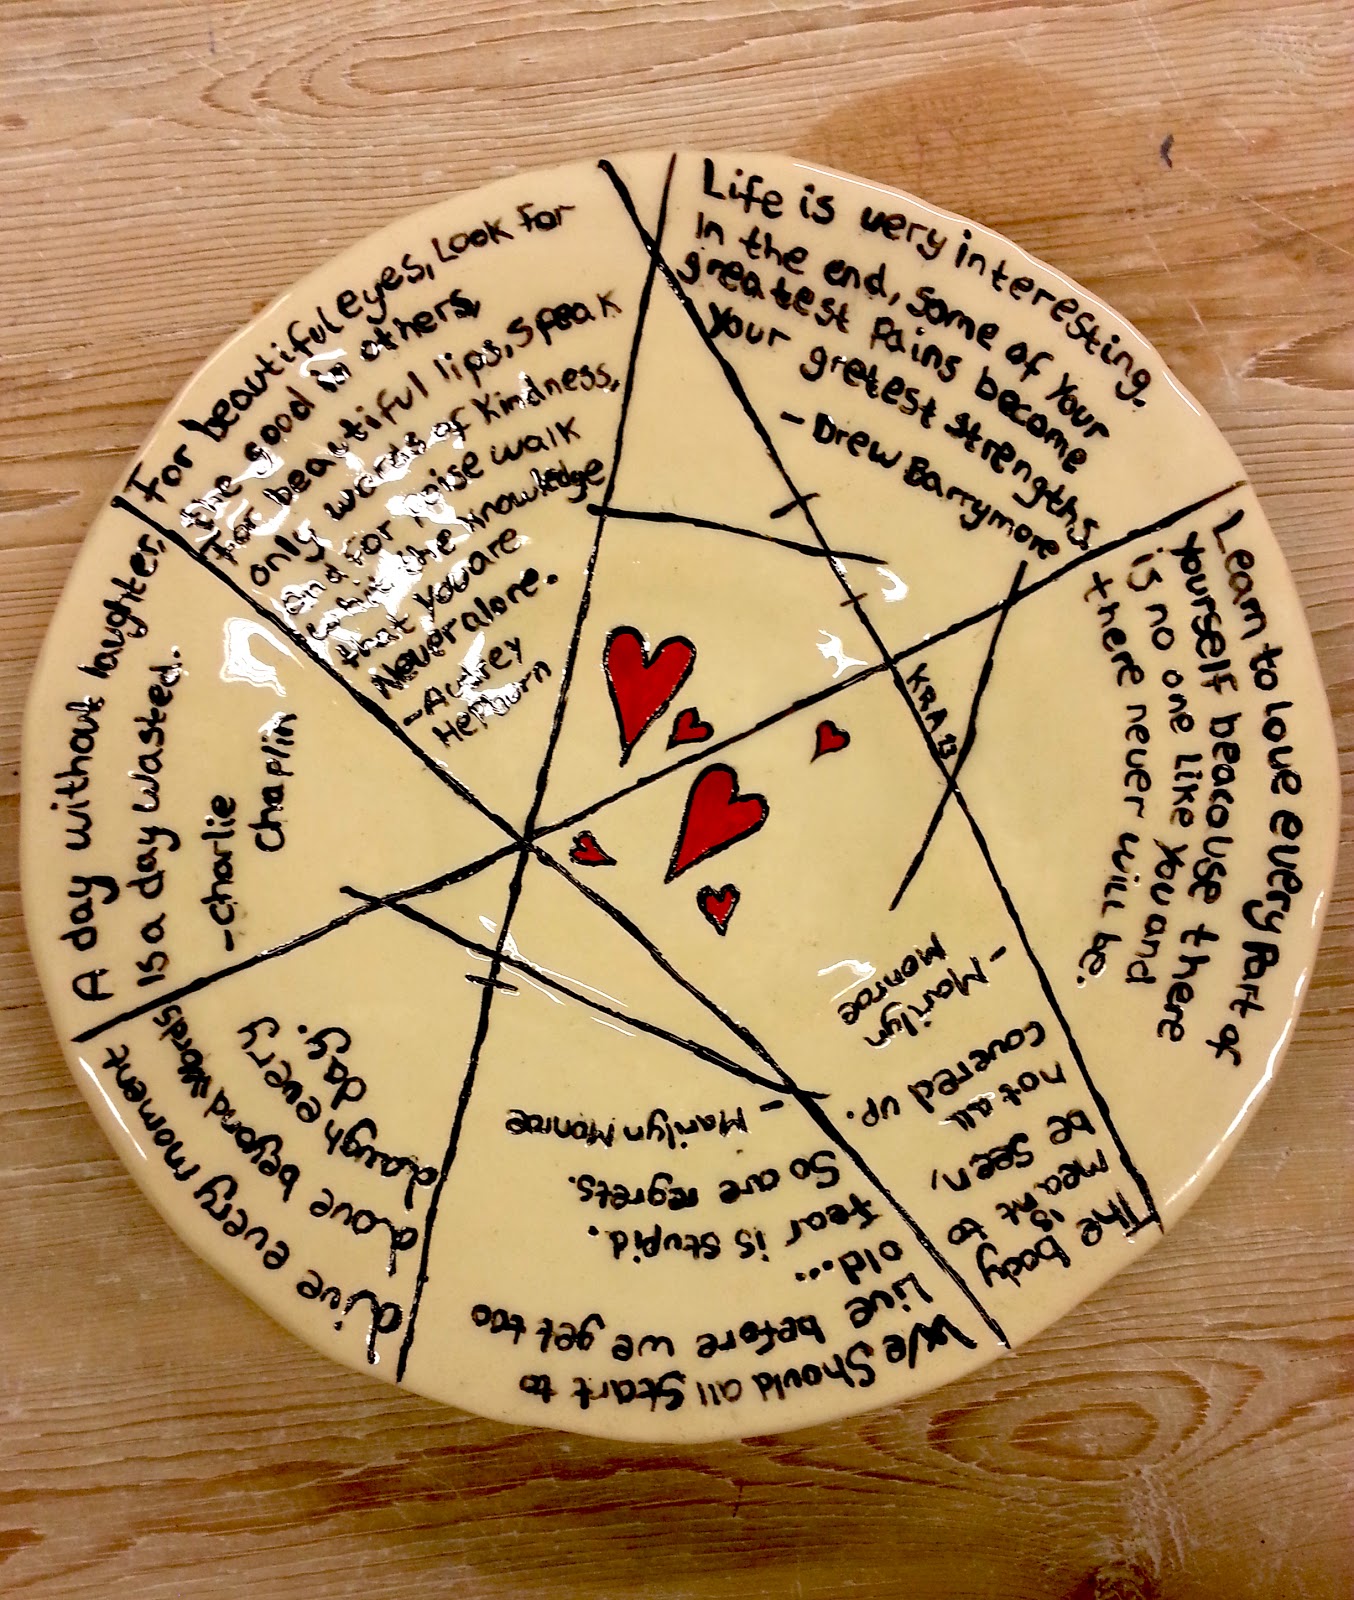 Life is very interesting.
In the end, some of your
greatest pains become
your gretest strengths.
- Drew Barrymore
Learn to love every part of
yourself beacouse there
is no one like you and
there never will be.
KRA 13
The body
is
meant to
be seen,
not all
covered up.
- Marilyn
Monroe
We should all start to
live before we get too
old...
fear is stupid.
So are regrets.
- Marilyn Monroe
Live every moment
Love beyond words
Laugh every
day.
A day without laughter,
is a day wasted.
- Charlie
Chaplin
For beautiful eyes, Look for
the good in others,
For beautiful lips, speak
only words of kindness,
and for poise walk
the knowledge
that you are
Never alone.
- Audrey
Hepburn